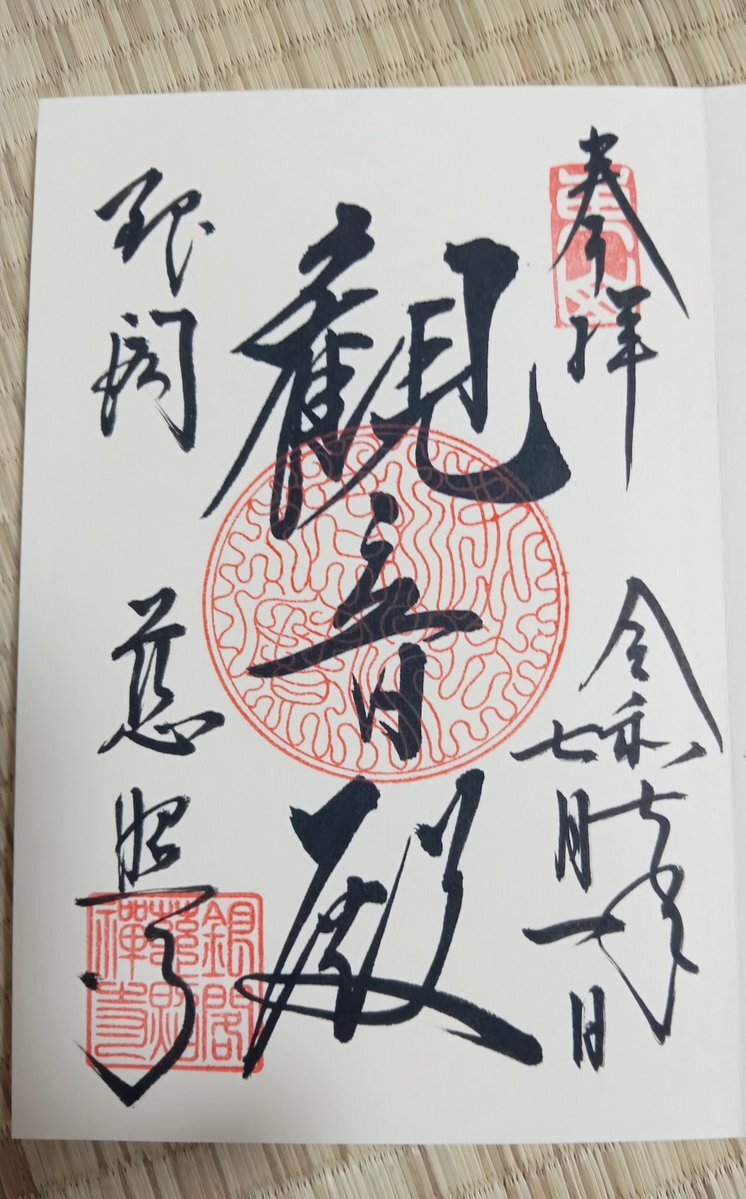 奉拝
令和七年
七月一日
観音殿
銀閣
慈照寺
銀閣
慈照
禪寺